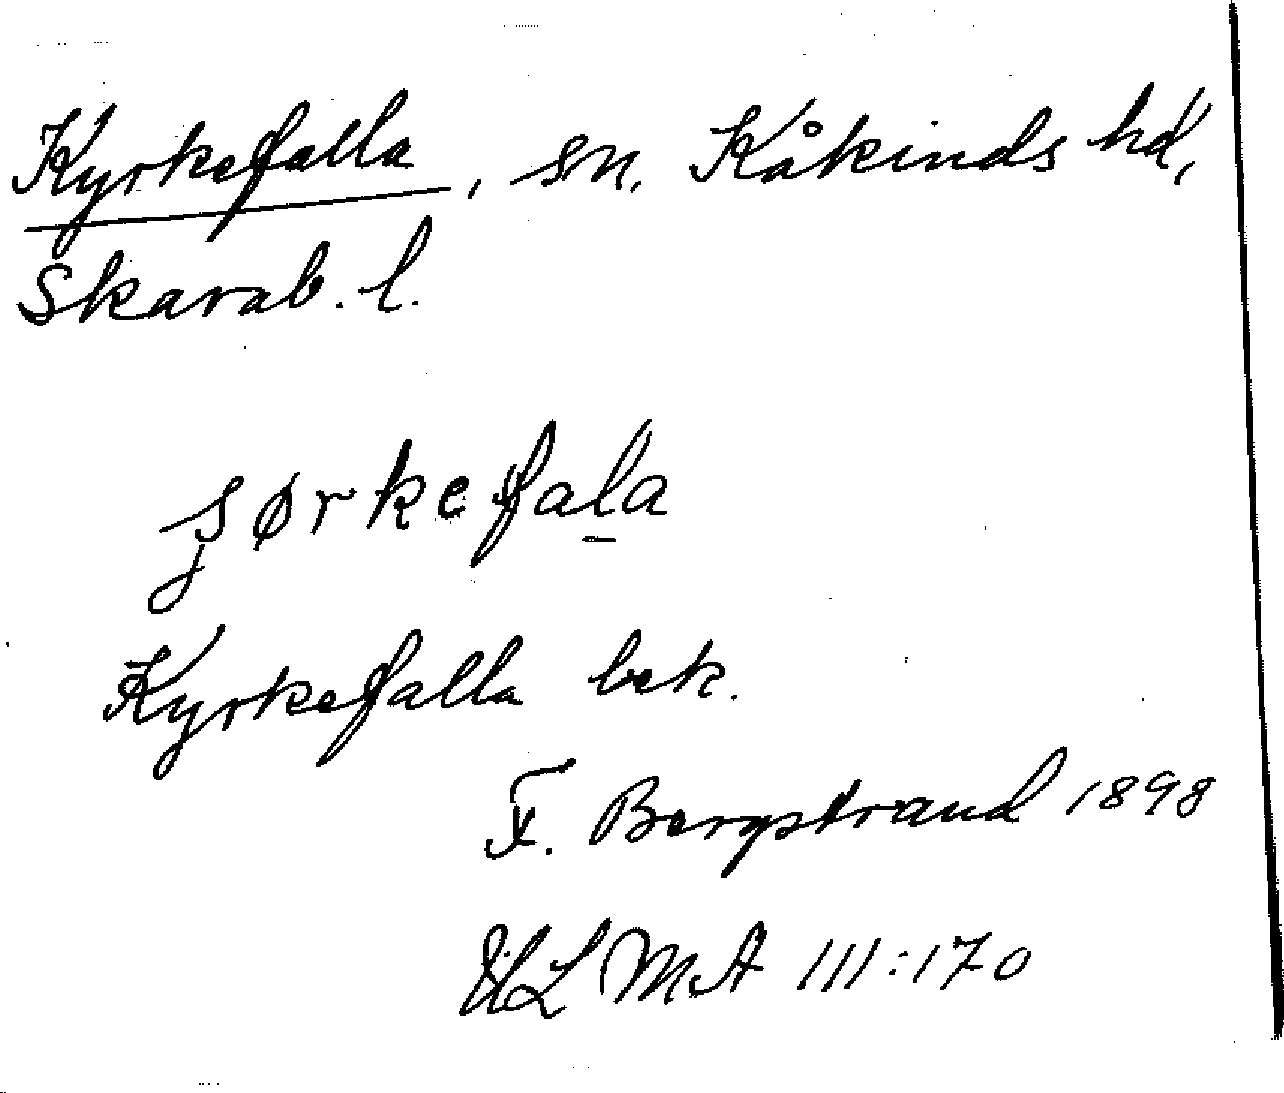 Kyrkefalla, sn. Kåkinds hd,
Skarab. l.
ʂørkefal̲a
Kyrkefalla bek.
F. Bergstrand 1898
ULMA III:170